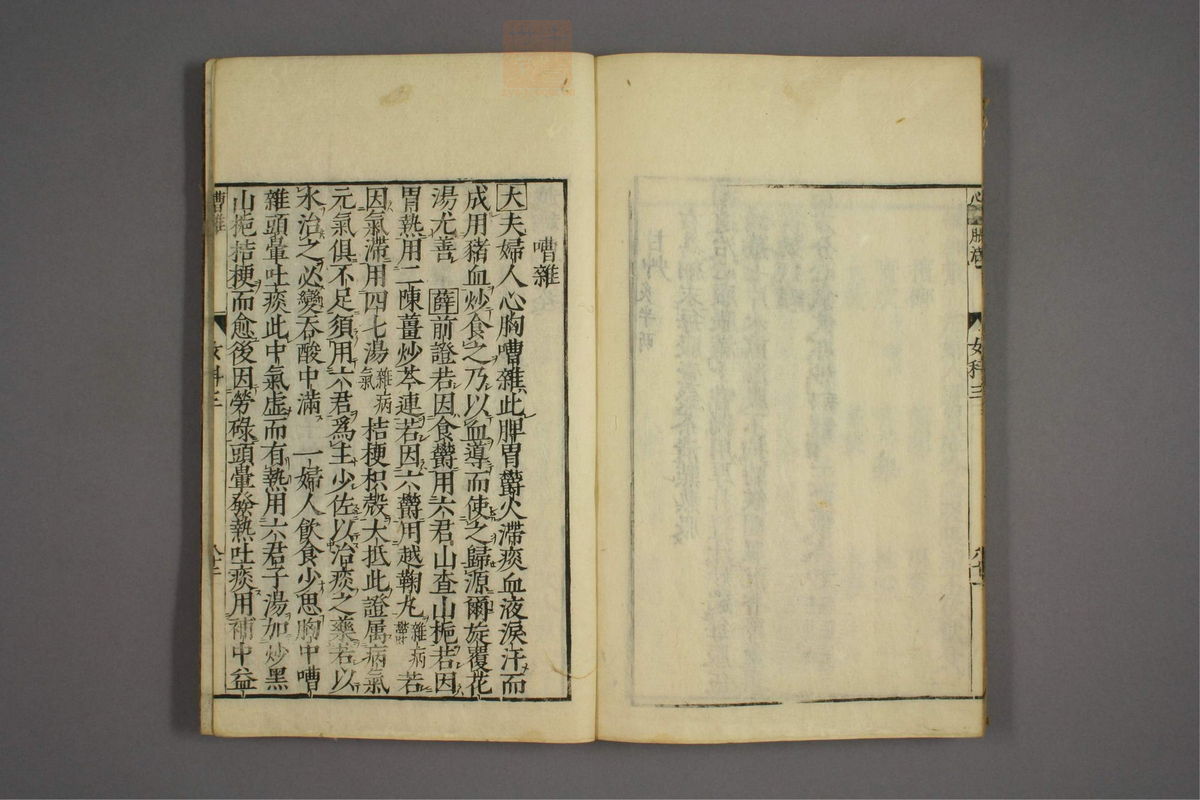 女科三
嘈雜
大夫婦人心胸嘈雜此脾胃欝火滯痰血液淚汗而
成用豬血炒食之乃以血導而使之歸源爾旋覆花
湯尤善 薛前證若因食欝用六君山査山梔若因
胃熱用二陳薑炒芩連若因六欝用越鞠丸雜病欝若
因氣滯用四七湯雜病氣桔梗枳殼大抵此證属病氣
元氣俱不足須用六君爲主少佐以治痰之藥若以
氷治之必變吞酸中滿 一婦人飲食少思胸中嘈
雜頭暈吐痰此中氣虛而有熱用六君子湯加炒黑
山梔桔梗而愈後因勞碌頭暈發熱吐痰用補中益
嘈雜
女科三